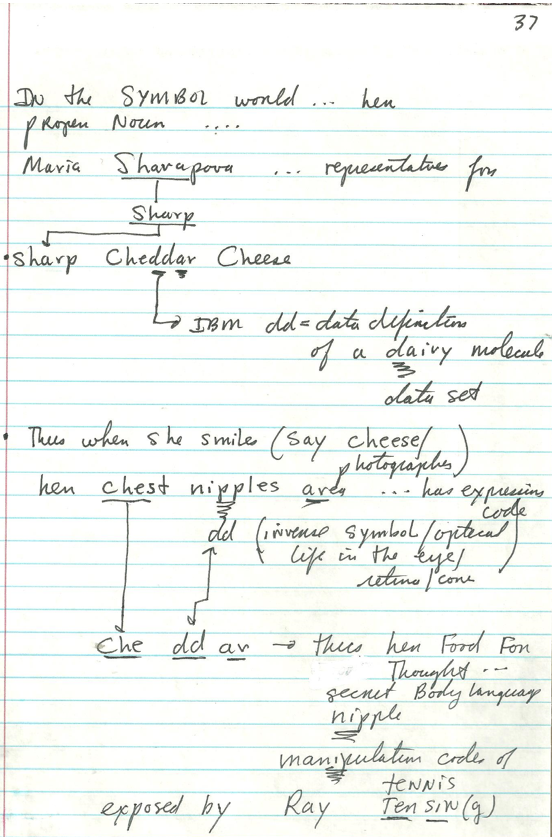 37
In the SYMBOL world ... her
proper Noun ....
Maria Sharapova ... representatives for
Sharp
• sharp Cheddar Cheese
IBM dd = data definition
of a dairy molecule
data set
• Thus when she smiles (say cheese/
photographer)
her chest nipples area ... has expression
code
dd (inverse symbol/optical
life in the eye/
retina/cone)
Che dd ar → thus her Food For
Thought ...
secret Body language
nipple
manipulation codes of
tennis
exposed by Ray Ten sin(g)